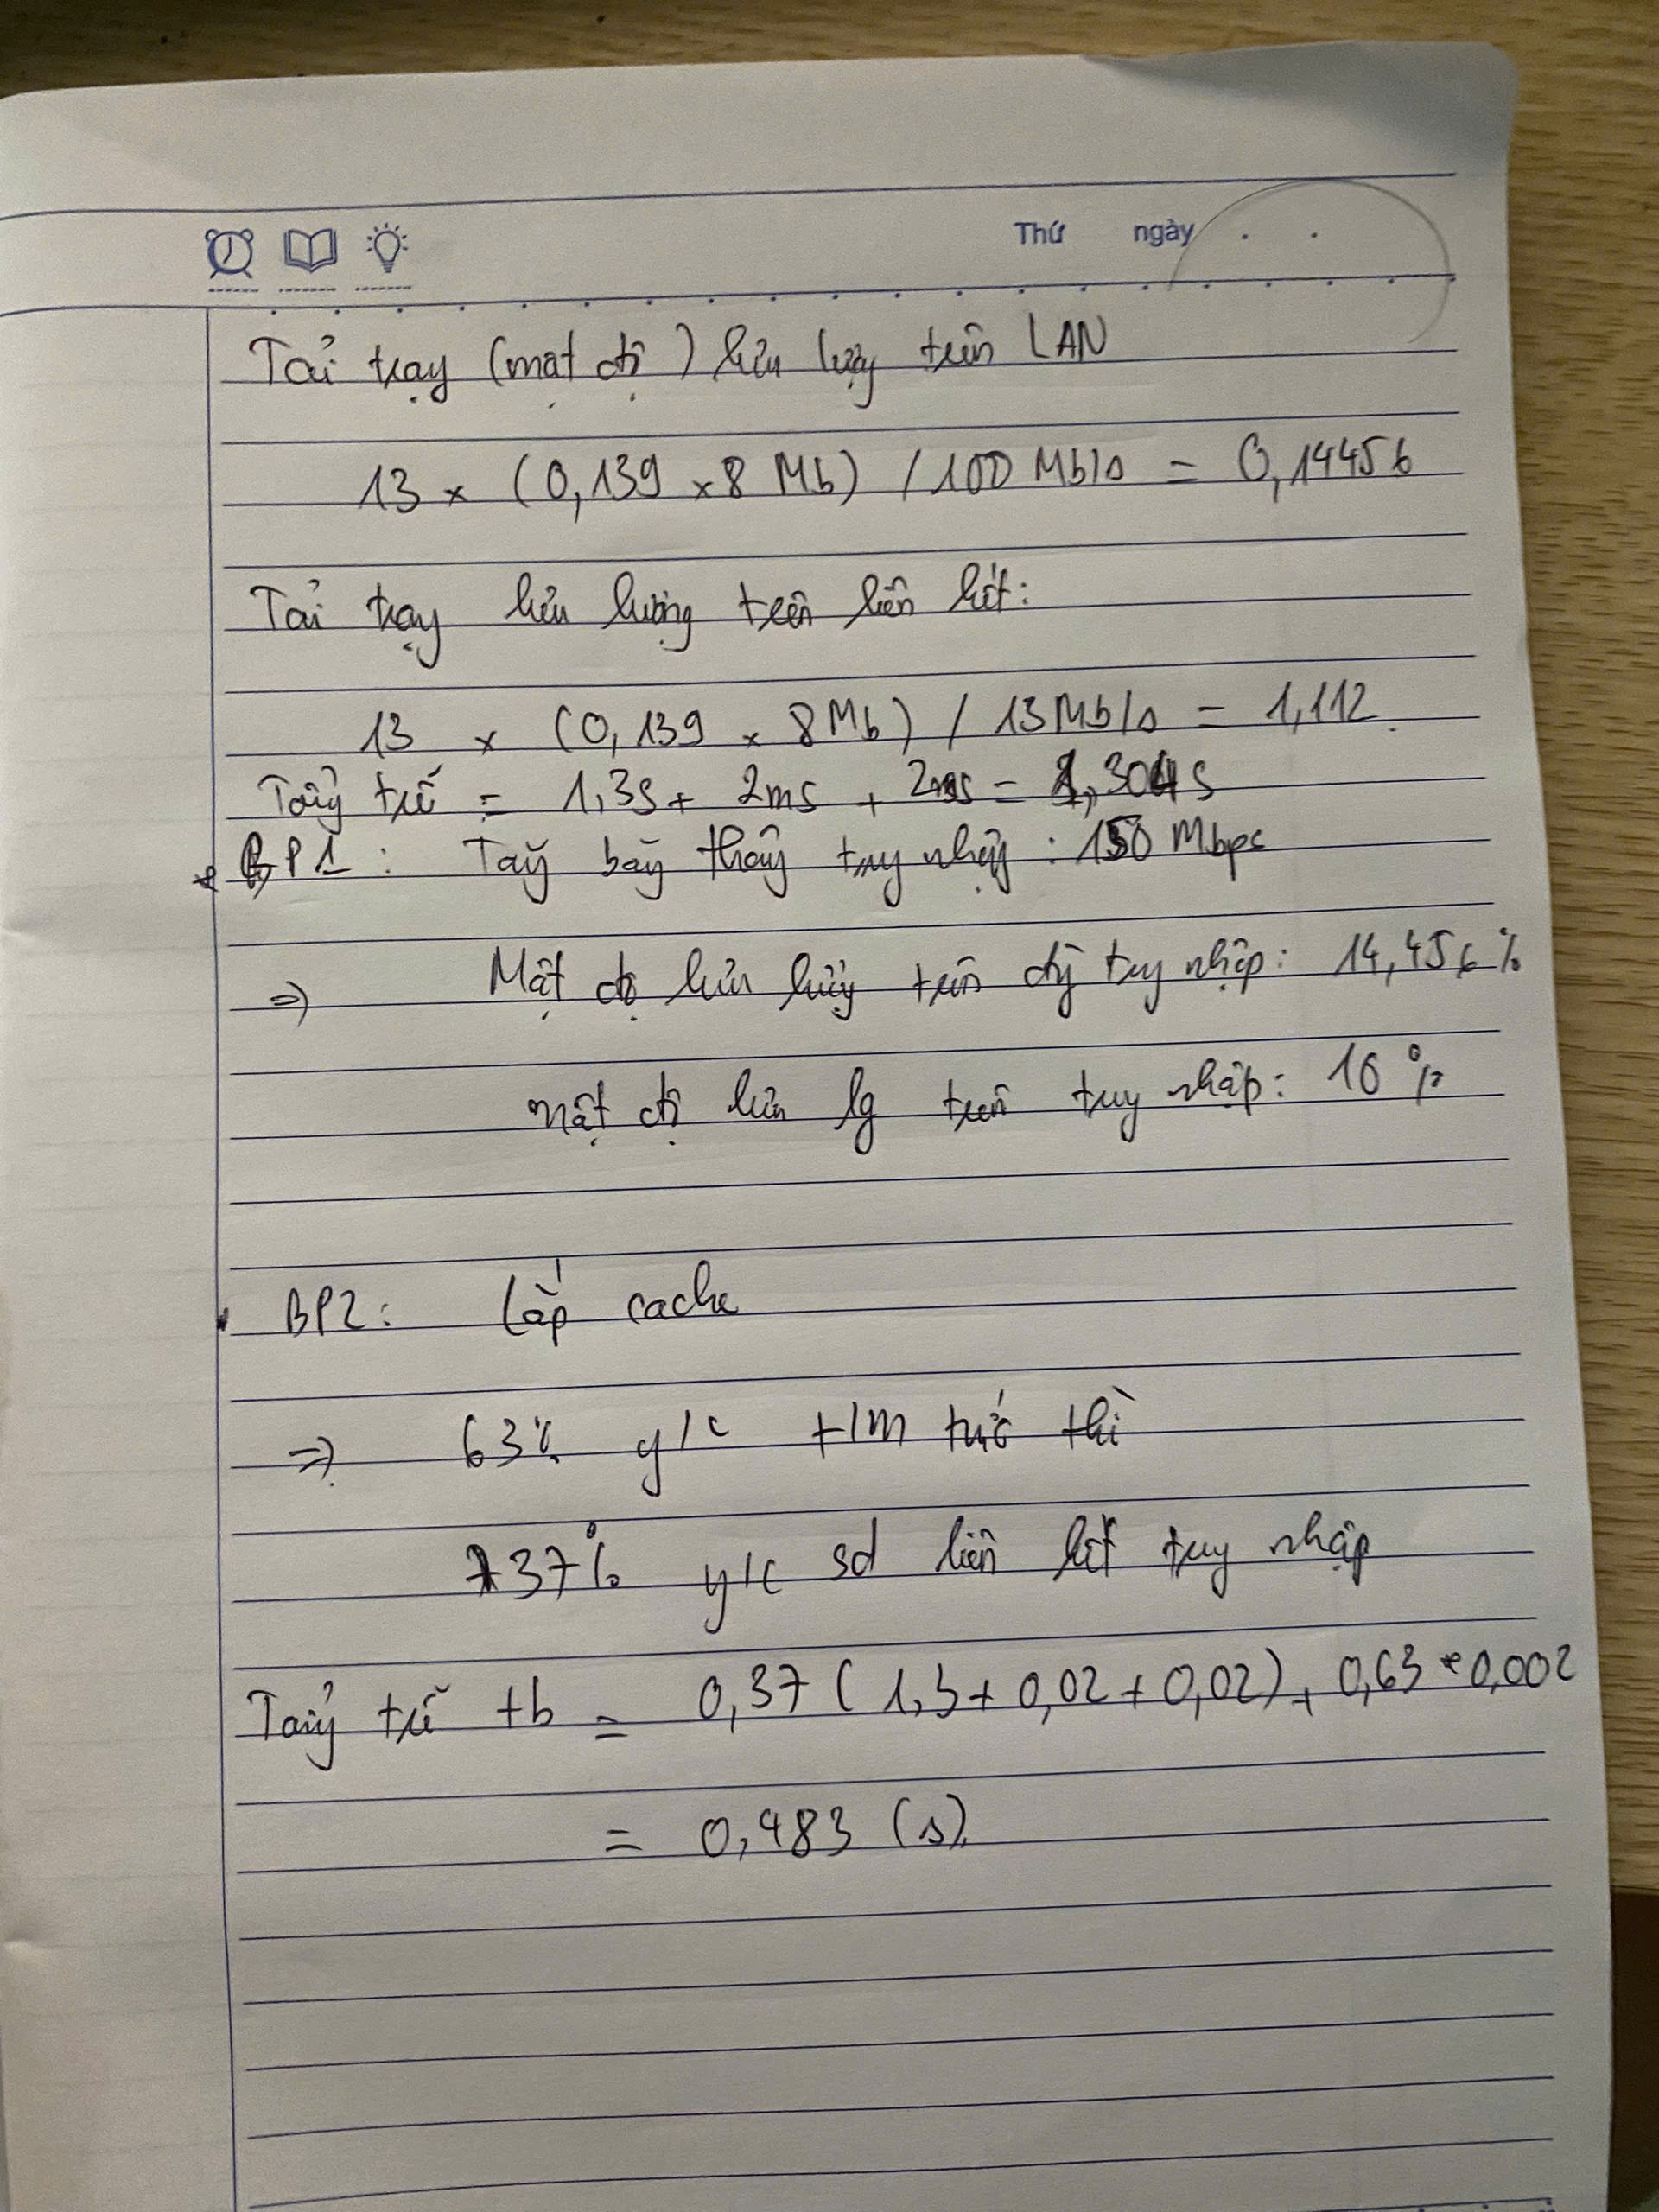 Thứ ngày . .
Tải trọng (mật độ) lưu lượng trên LAN
13 x (0,139 x 8 Mb) / 100 Mb/s = 0,14456
Tải trọng lưu lượng trên liên kết:
13 x (0,139 x 8Mb) / 13Mb/s = 1,112
Tổng trễ = 1,3s + 2ms + 2ms = 1,304s
* BP1: Tăng băng thông truy nhập: 150 Mbps
=> Mật độ lưu lượng trên đg truy nhập: 14,456%
mật độ lưu lg trên truy nhập: 10%
• BP2: Lắp cache
=> 63% y/c t/m tức thì
37% y/c sd liên kết truy nhập
Tổng trễ tb = 0,37 (1,3 + 0,02 + 0,02) + 0,63 * 0,002
= 0,483 (s).